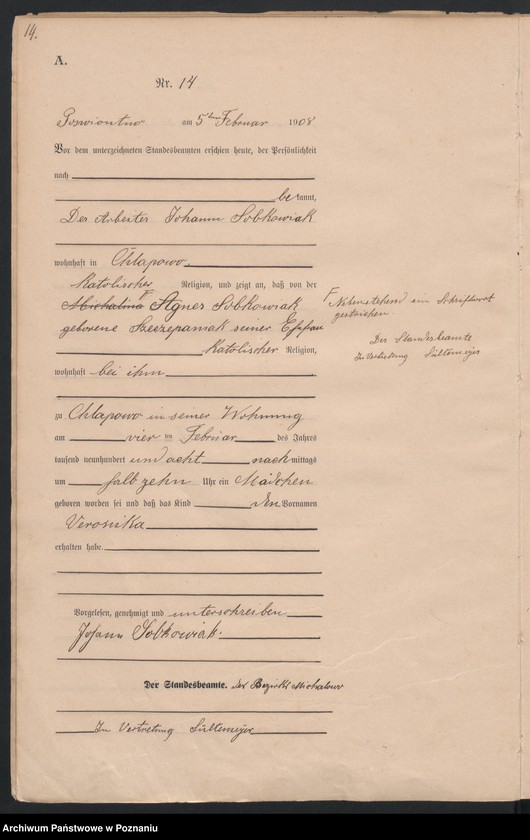 14.
A.
Nr. 14
am 5ten Februar 1908
Vor dem unterzeichneten Standesbeamten erschien heute, der Persönlichkeit
nach
bekannt,
Der Arbeiter Johann Sobkowiak
wohnhaft in Chlapowo,
katolischer Religion, und zeigt an, daß von der
Michalina Agnes Sobkowiak
geborene Szczepaniak seiner Ehefrau
katolischer Religion,
wohnhaft bei ihm
zu Chlapowo in seiner Wohnung
am vier ten Februar des Jahres
tausend neunhundert und acht nachmittags
um halb zehn Uhr ein Mädchen
geboren worden sei und daß das Kind den Vornamen
Veronika
erhalten habe.
Vorgelesen, genehmigt und unterschrieben
Johann Sobkowiak.
Der Standesbeamte. des Bezirks Michalowo
In Vertretung Sültemeyer
Nebenstehend ein Schriftwort
gestrichen.
Der Standesbeamte
In Vertretung Sültemeyer
Archiwum Państwowe w Poznaniu